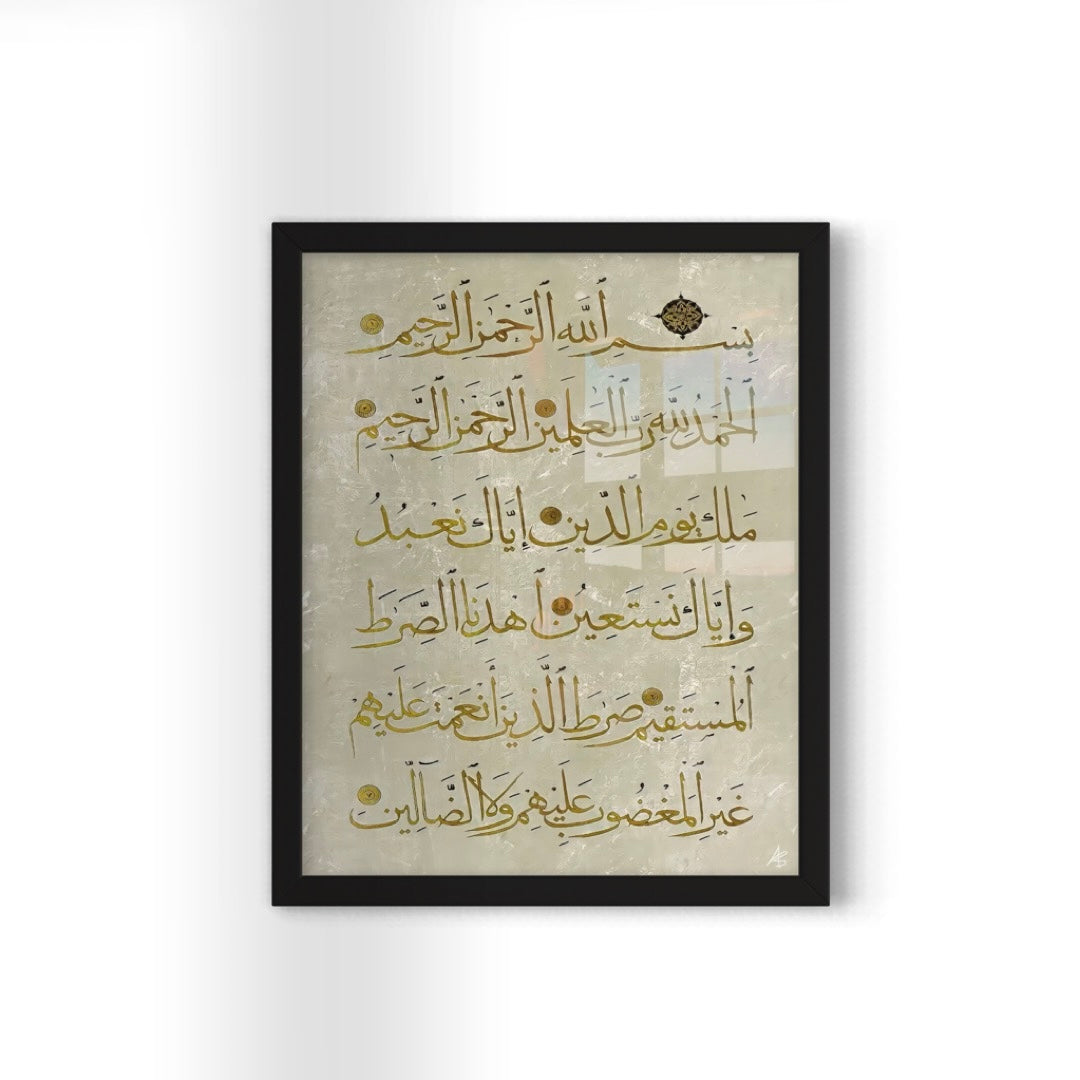 بِسْمِ ٱللَّهِ ٱلرَّحْمَٰنِ ٱلرَّحِيمِ
ٱلْحَمْدُ لِلَّهِ رَبِّ ٱلْعَٰلَمِينَ ٱلرَّحْمَٰنِ ٱلرَّحِيمِ
مَٰلِكِ يَوْمِ ٱلدِّينِ إِيَّاكَ نَعْبُدُ
وَإِيَّاكَ نَسْتَعِينُ ٱهْدِنَا ٱلصِّرَٰطَ
ٱلْمُسْتَقِيمَ صِرَٰطَ ٱلَّذِينَ أَنْعَمْتَ عَلَيْهِمْ
غَيْرِ ٱلْمَغْضُوبِ عَلَيْهِمْ وَلَا ٱلضَّآلِّينَ